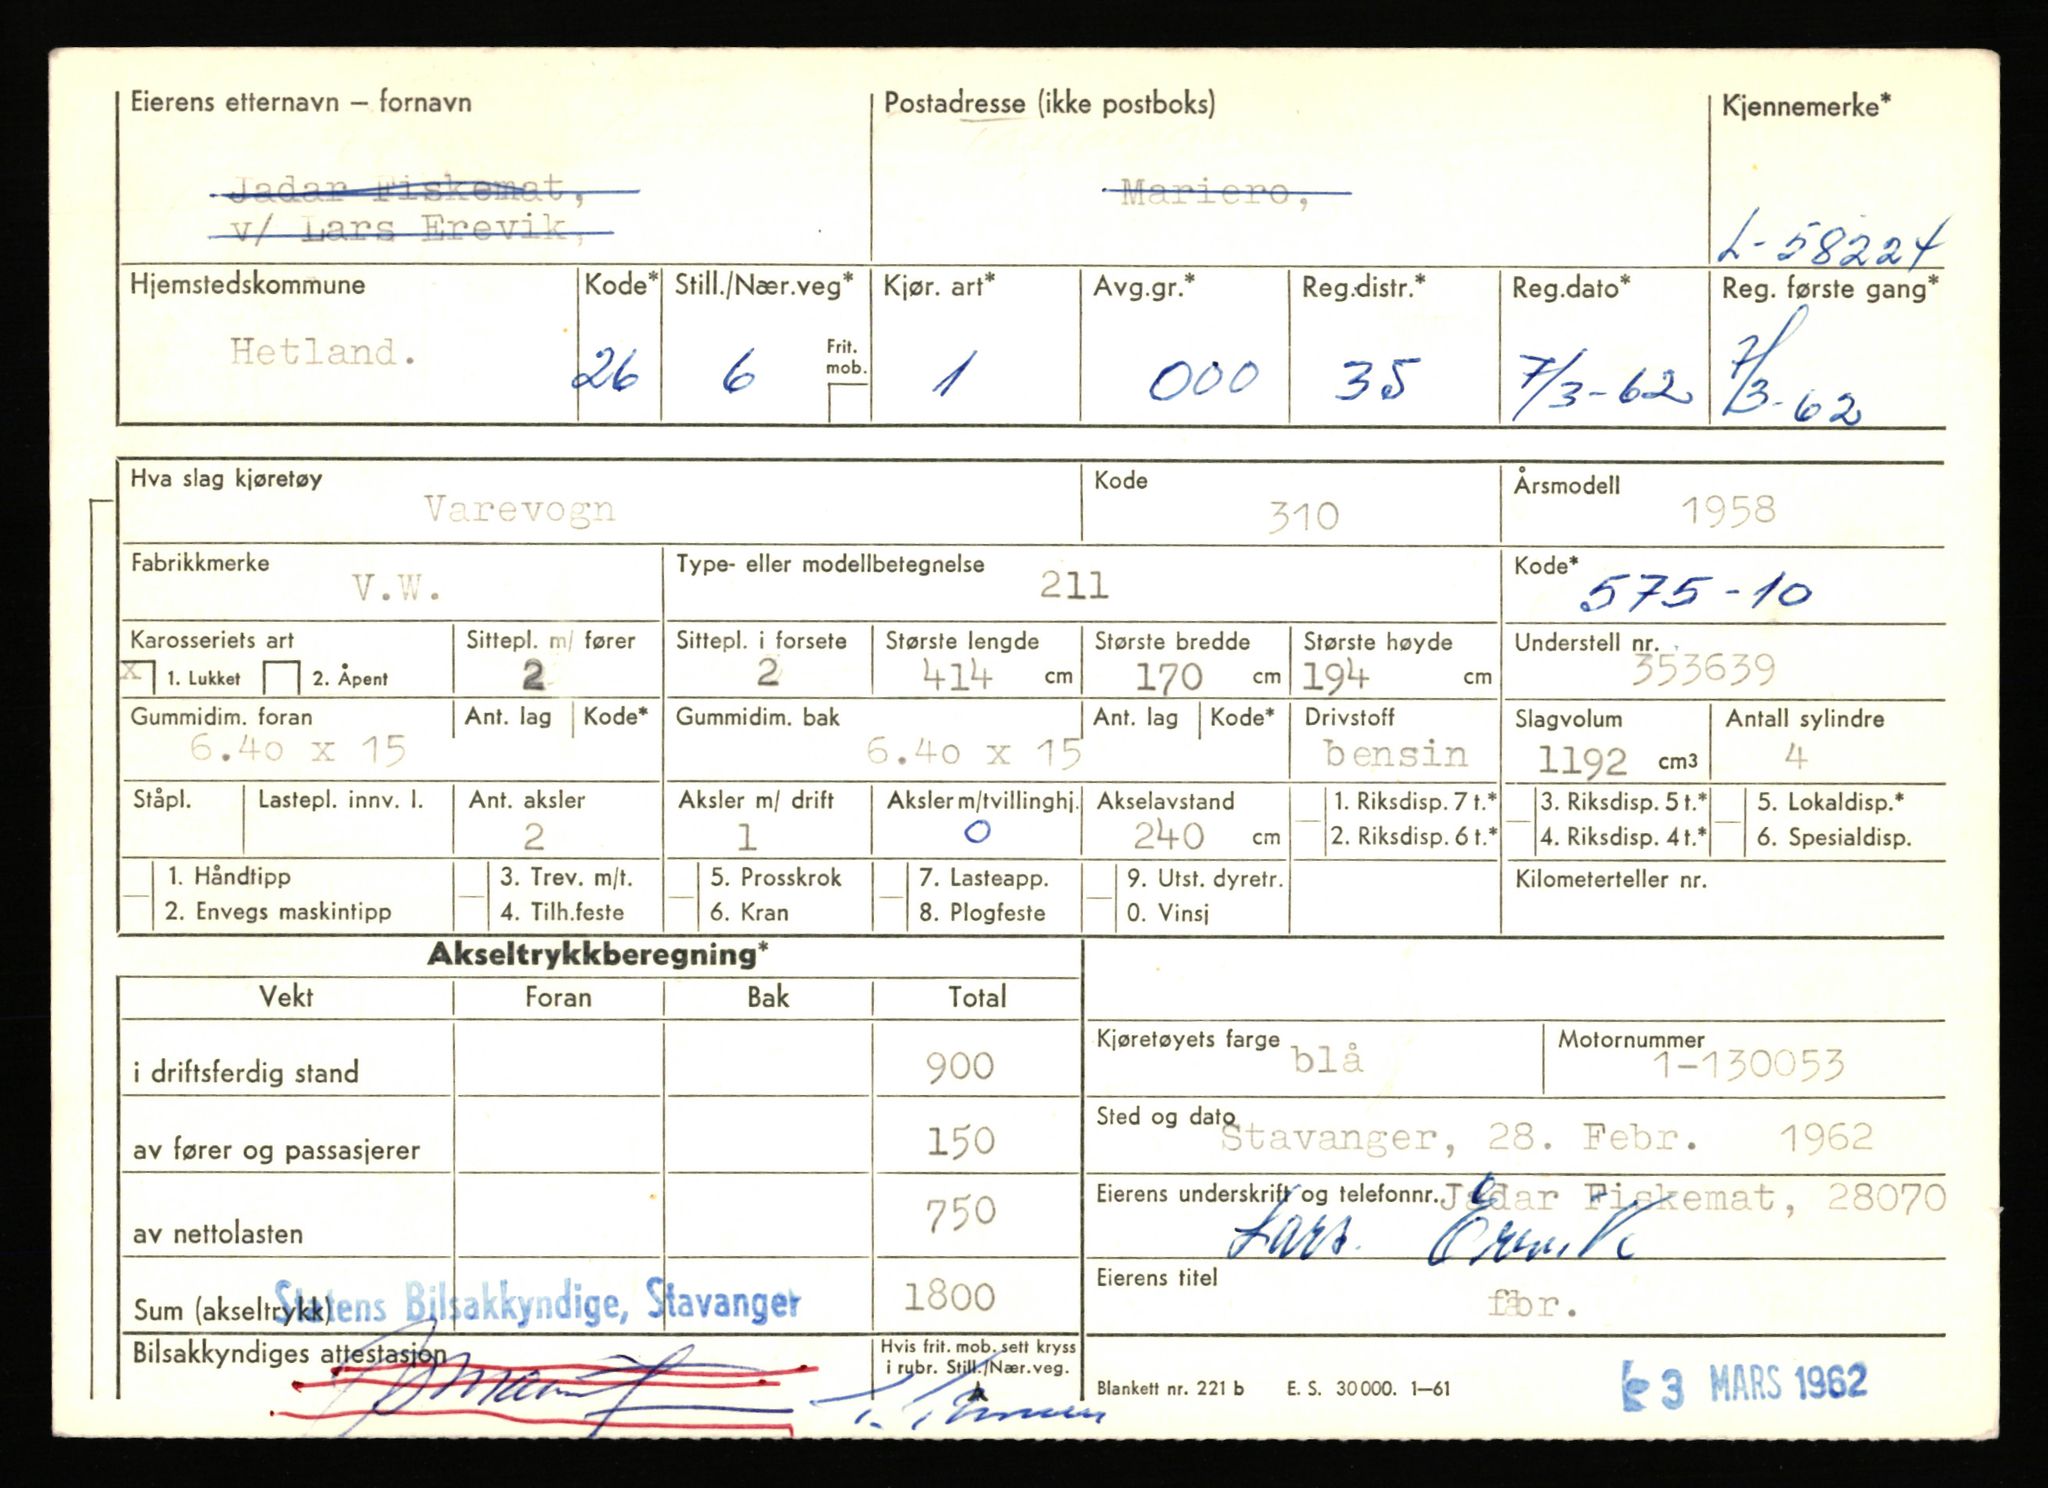 Eierens etternavn – fornavn
Postadresse (ikke postboks)
Kjennemerke*
Jadar Fiskemat,
v/ Lars Erevik,
Mariero,
L-58224
Hjemstedskommune
Kode*
Still./Nær.veg*
Kjør. art*
Avg.gr.*
Reg.distr.*
Reg.dato*
Reg. første gang*
Hetland.
26
6
Frit. mob.
1
000
35
7/3-62
7/3-62
Hva slag kjøretøy
Varevogn
Kode
310
Årsmodell
1958
Fabrikkmerke
V.W.
Type- eller modellbetegnelse
211
Kode*
575-10
Karosseriets art
x 1. Lukket 2. Åpent
Sittepl. m/ fører
2
Sittepl. i forsete
2
Største lengde
414 cm
Største bredde
170 cm
Største høyde
194 cm
Understell nr.
353639
Gummidim. foran
6.40 x 15
Ant. lag
Kode*
Gummidim. bak
6.40 x 15
Ant. lag
Kode*
Drivstoff
bensin
Slagvolum
1192 cm3
Antall sylindre
4
Ståpl.
Lastepl. innv. l.
Ant. aksler
2
Aksler m/ drift
1
Aksler m/tvillinghj.
0
Akselavstand
240 cm
1. Riksdisp. 7 t.*
2. Riksdisp. 6 t.*
3. Riksdisp. 5 t.*
4. Riksdisp. 4 t.*
5. Lokaldisp.*
6. Spesialdisp.
1. Håndtipp
2. Envegs maskintipp
3. Trev. m/t.
4. Tilh.feste
5. Prosskrok
6. Kran
7. Lasteapp.
8. Plogfeste
9. Utst. dyretr.
0. Vinsj
Kilometerteller nr.
Akseltrykkberegning*
Vekt
Foran
Bak
Total
i driftsferdig stand
900
av fører og passasjerer
150
av nettolasten
750
Sum (akseltrykk)
1800
Statens Bilsakkyndige, Stavanger
Bilsakkyndiges attestasjon
Hvis frit. mob. sett kryss
i rubr. Still./Nær.veg.
Kjøretøyets farge
blå
Motornummer
1-130053
Sted og dato
Stavanger, 28. Febr. 1962
Eierens underskrift og telefonnr.
Jadar Fiskemat, 28070
Lars Erevik
Eierens titel
fabr.
Blankett nr. 221 b E. S. 30 000. 1–61
3 MARS 1962